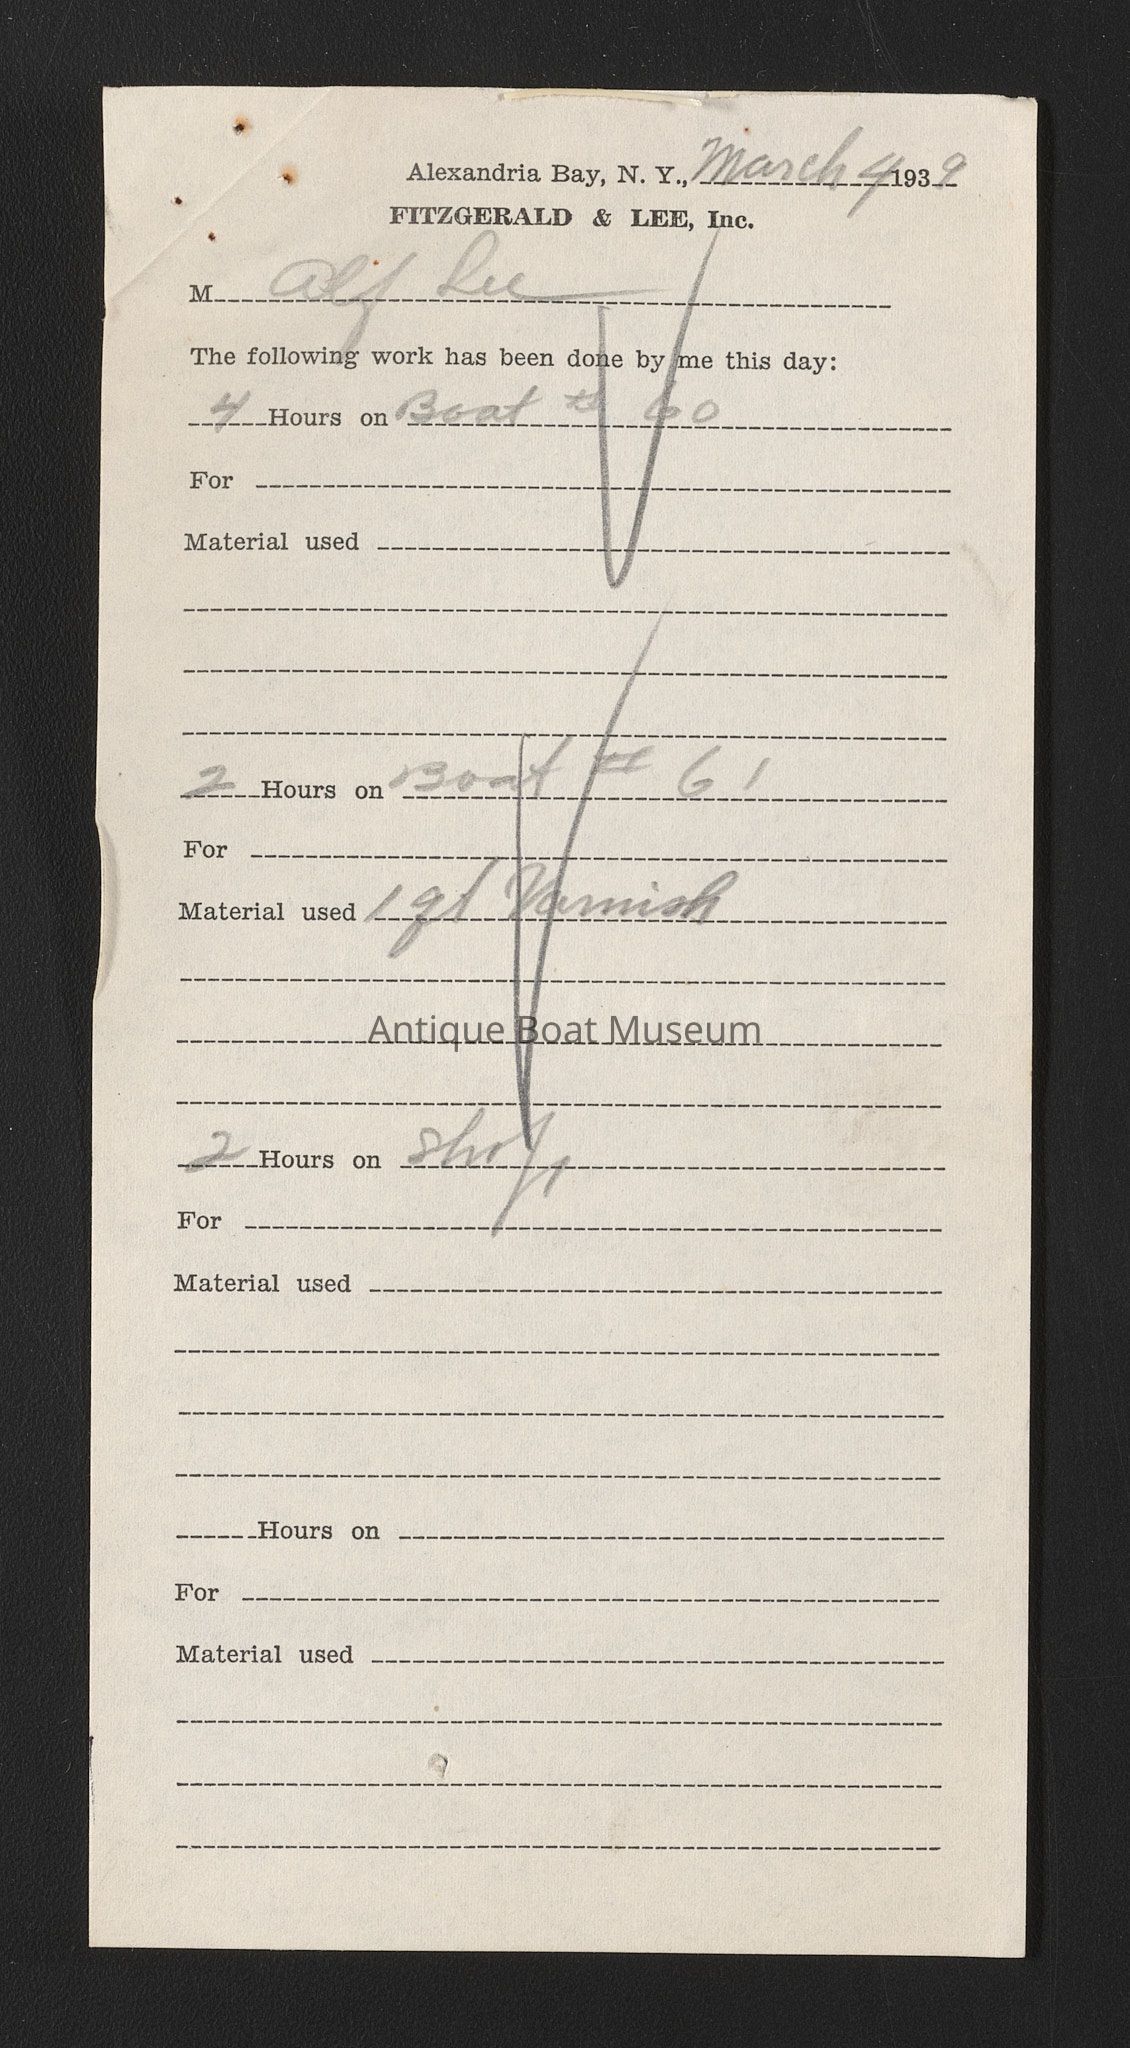 Alexandria Bay, N. Y., March 4 1939
FITZGERALD & LEE, Inc.
M Alf Lee
The following work has been done by me this day:
4 Hours on Boat # 60
For
Material used
2 Hours on Boat # 61
For
Material used 1 qt Varnish
Antique Boat Museum
2 Hours on Shop
For
Material used
Hours on
For
Material used